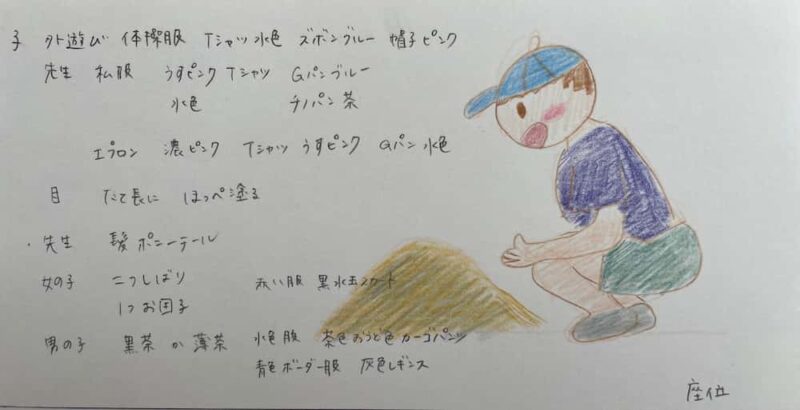 子 外遊び 体操服 Tシャツ水色 ズボンブルー 帽子ピンク
先生 私服 うすピンク Tシャツ Gパンブルー
水色 チノパン茶
エプロン 濃ピンク Tシャツ うすピンク Gパン 水色
目 たて長に ほっぺ塗る
・先生 髪 ポニーテール
女の子 二つしばり 赤い服 黒水玉スカート
1つお団子
男の子 黒茶 か 薄茶 水色服 茶色おうど色カーゴパンツ
青色ボーダー服 灰色レギンス
座位